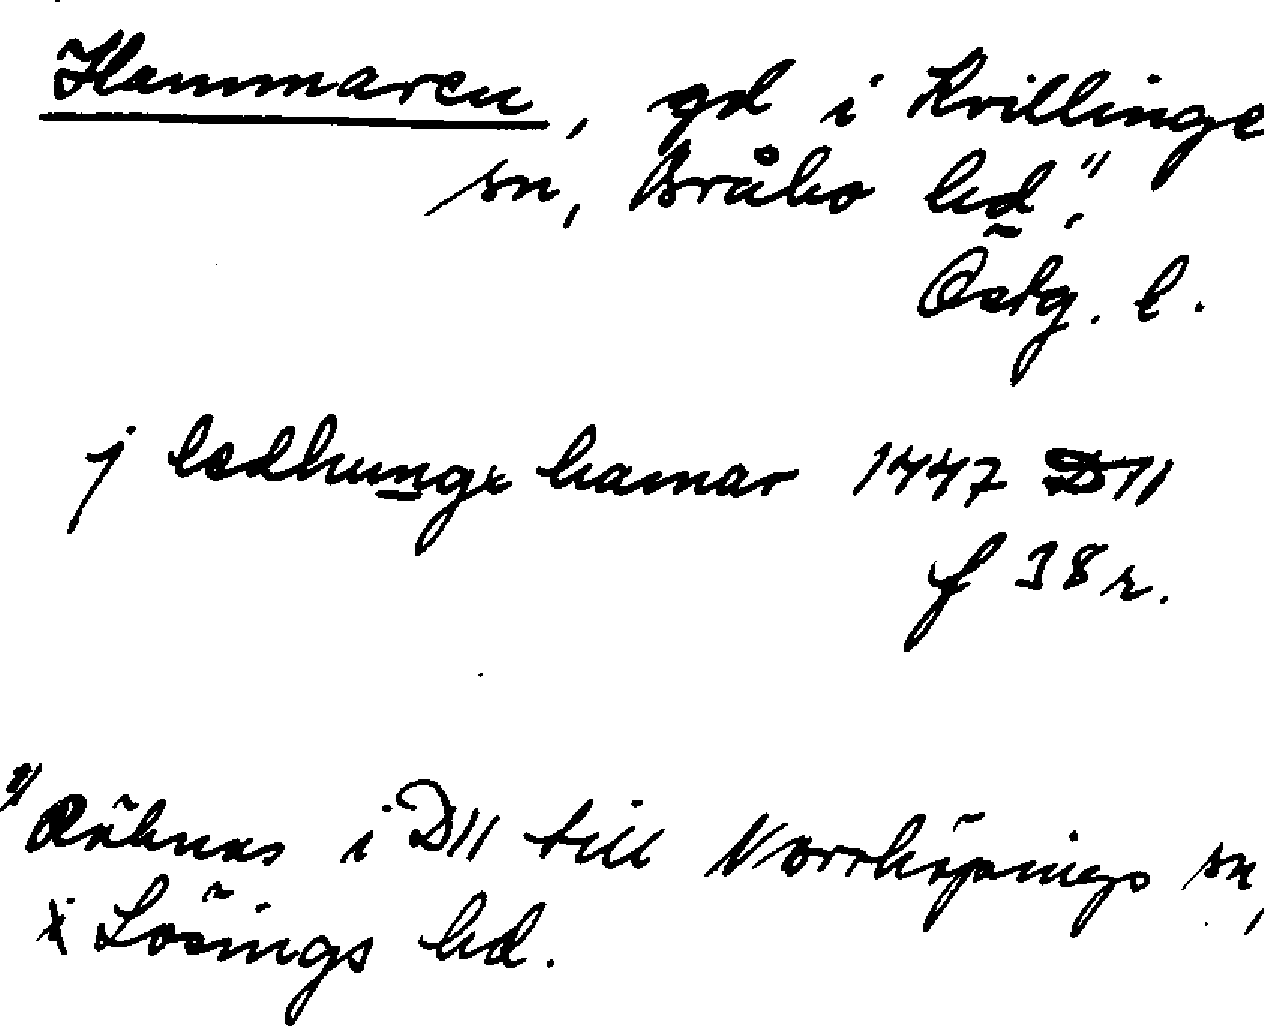 Hammaren, gd i Kvillinge
sn, Bråbo hd,¹⁾
Östg. l.
j ledhunge hamar 1447 D11
f 38 r.
¹⁾ Räknas i D11 till Norrköpings sn,
i Lösings hd.